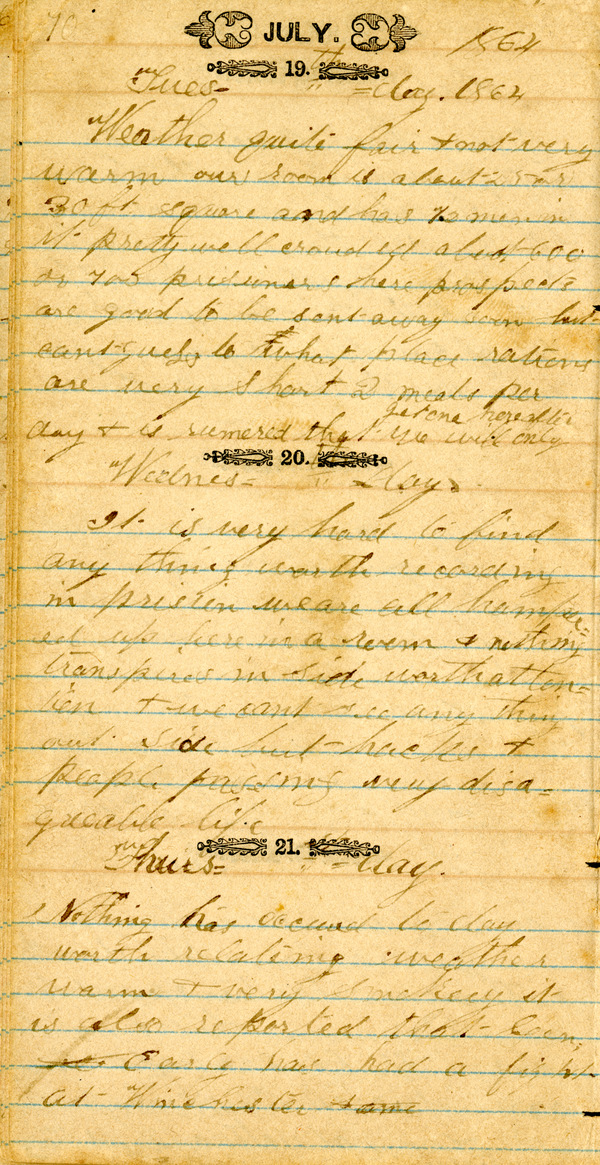 70 JULY. 1864
19.th
"Tues= " =day. 1864
"Weather quite fair & not very
warm our room is about 25 or
30 ft square and has 72 men in
it pretty well crouded about 600
or 700 prisiners here prospects
are good to be sent away soon but
cant guess to what place rations
are very short 2 meals per
get one hereafter
day & is rumered that we will only
20.
"Wednes= " day.
It is very hard to find
any thing worth recording
in prision we are all hamper=
ed up here in a room & nothing
transpires in side worth atten=
tion & we cant see any thing
out side but hacks &
people passing very disa=
greable life
21.
"Thurs= " =day.
Nothing has occured to day
worth relating weather
warm & very smokey it
is also reported that Gen,
Early has had a fight
at Winchester some